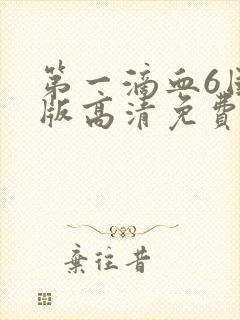 第一滴血6国
版高清免费
弃往昔